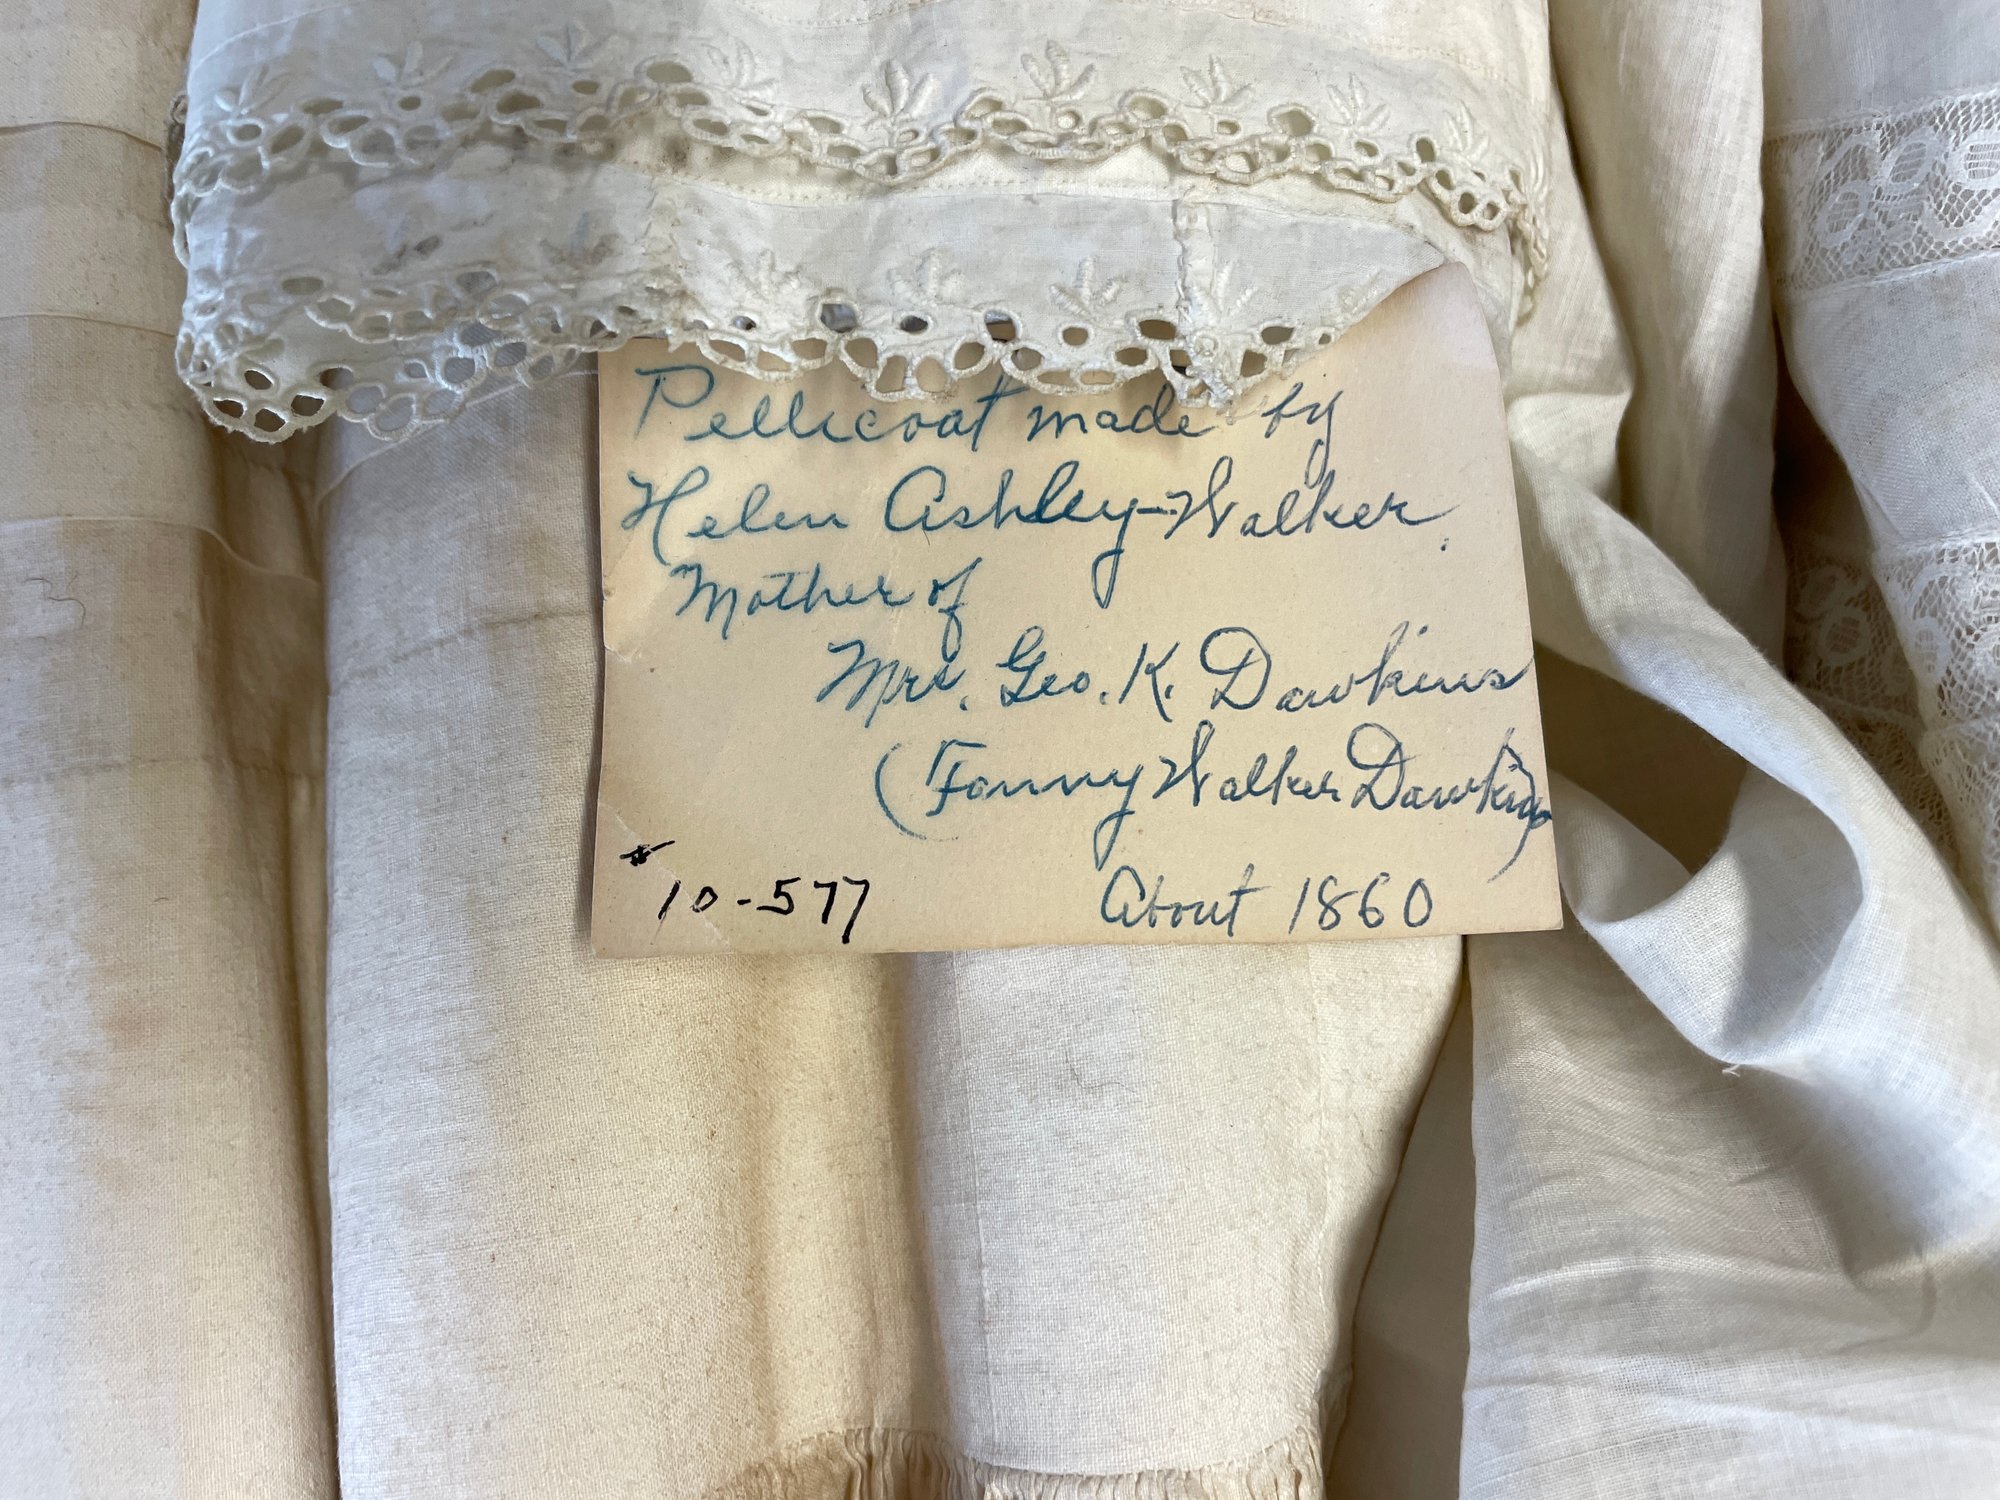 Petticoat made by
Helen Ashley-Walker.
Mother of
Mrs. Geo. K. Dawkins
(Fanny Walker Dawkins)
10-577 About 1860